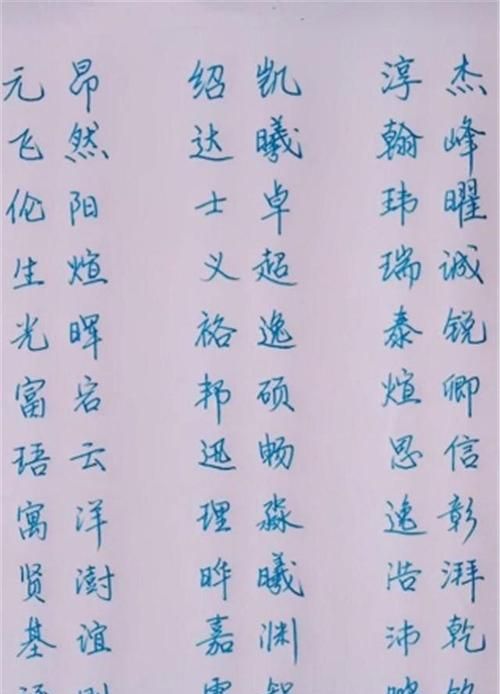 元昂 绍凯 淳杰
飞然 达曦 翰峰
伦阳 士卓 玮曜
生煊 义超 瑞诚
光晖 裕逸 泰锐
富宕 邦硕 煊卿
珸云 迅畅 思信
寓洋 理淼 逸彰
贤澍 晔曦 浩湃
基谊 嘉渊 沛乾